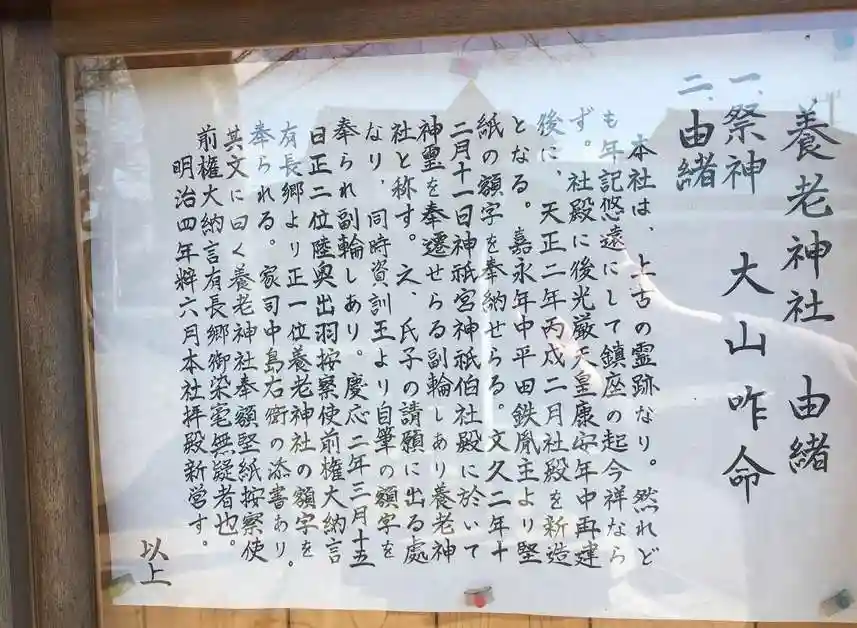 養老神社 由緒
一、祭神 大山咋命
二、由緒
本社は、上古の霊跡なり。然れど
も年記悠遠にして鎮座の起今祥なら
ず。社殿に後光厳天皇康安年中再建
後に、天正二年丙戌二月社殿を新造
となる。嘉永年中平田鉄胤主より堅
紙の額字を奉納せらる。文久二年十
二月十一日神祇宮神祇伯社殿に於いて
神霊を奉遷せらる副輪しあり養老神
社と称す。之、氏子の請願に出る處
なり、同時資訓王より自筆の額字を
奉られ副輪しあり。慶応二年三月十五
日正二位陸奥出羽按察使前権大納言
有長郷より正一位養老神社の額字を
奉られる。家司中島右衛の添書あり。
其文に曰く養老神社奉額堅紙按察使
前権大納言有長郷御染宅無疑者也。
明治四年粋六月本社拝殿新営す。
以上